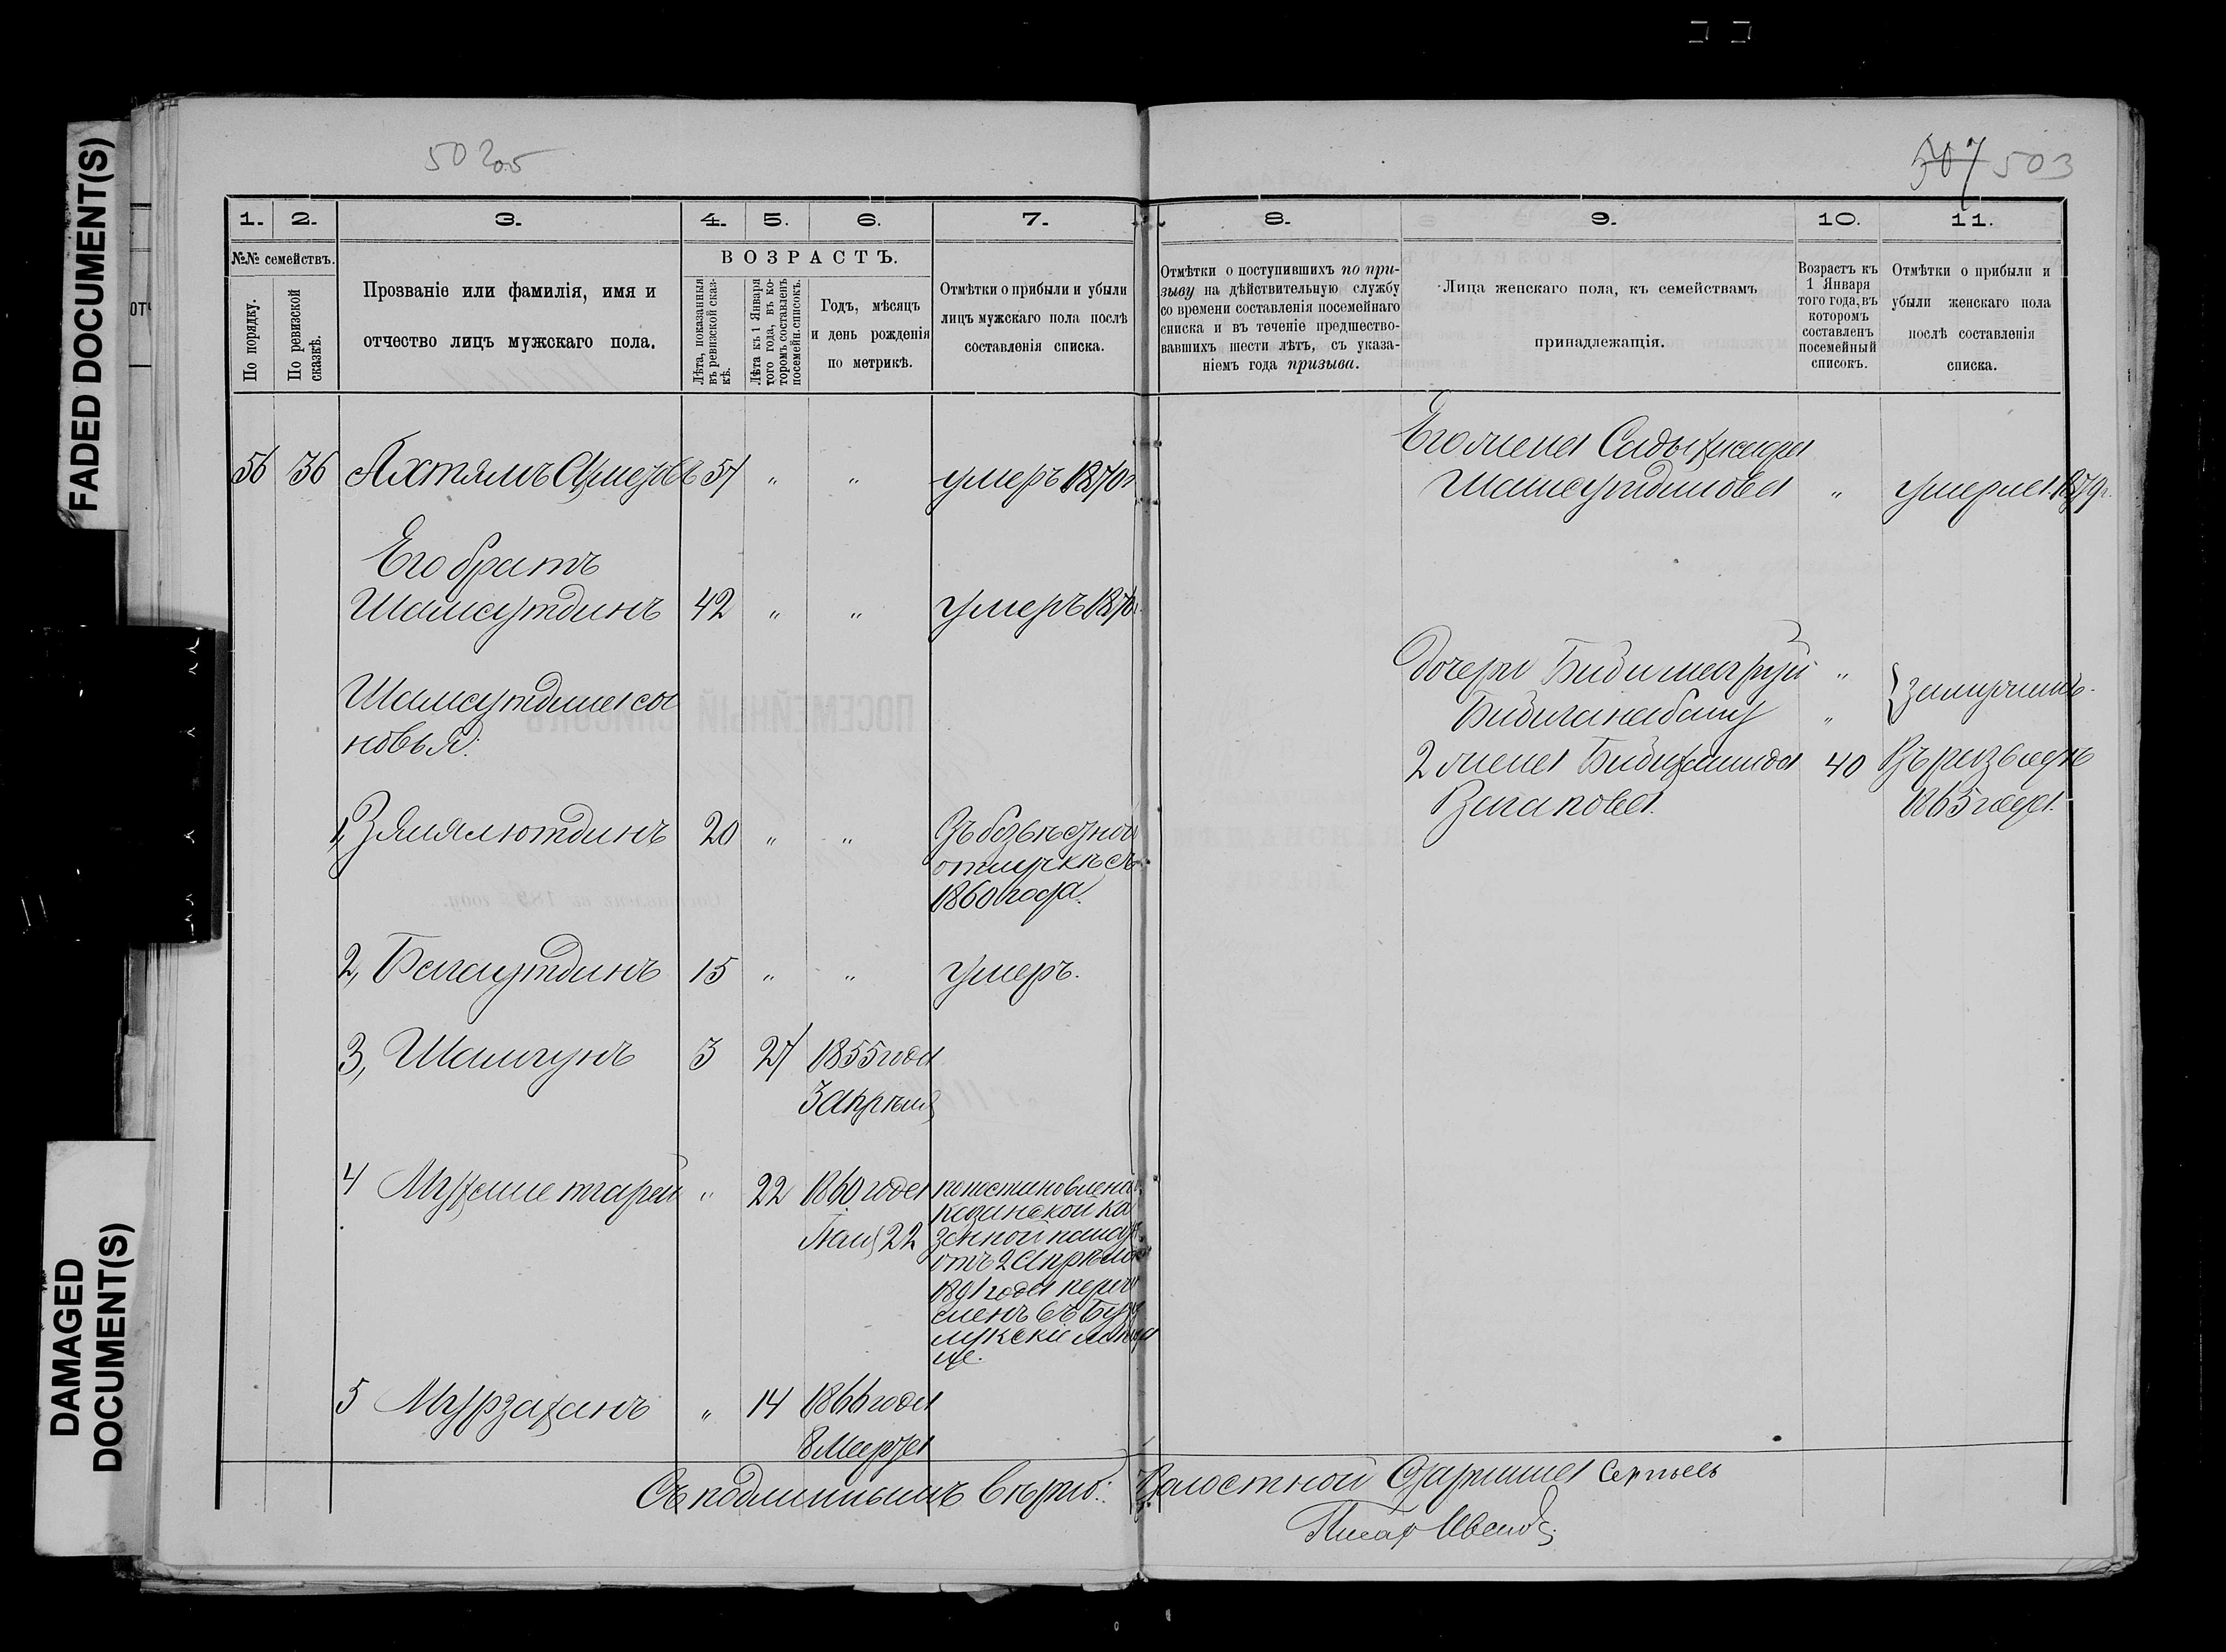 FADED DOCUMENT(S)
DAMAGED
DOCUMENT(S)
507 503
1. 2. 3. 4. 5. 6. 7.
№№ семействъ.
По порядку.
По ревизской сказкѣ.
Прозваніе или фамилія, имя и
отчество лицъ мужскаго пола.
ВОЗРАСТЪ.
Лѣта, показанныя
въ ревизской сказ-
кѣ.
Лѣта къ 1 Января
того года, въ ко-
торомъ составленъ
посемейн. списокъ.
Годъ, мѣсяцъ
и день рожденія
по метрикѣ.
Отмѣтки о прибыли и убыли
лицъ мужскаго пола послѣ
составленія списка.
56 36 Ахтямъ 57 " " умеръ 1870г
Его братъ
Шамсутдинъ 42 " " умеръ 1870г.
Шамсутдина сы
новья:
1, Зямялютдинъ 20 " " Въ безвѣстной
отлучкѣ съ
1860 года.
2, Багаутдинъ 15 " " умеръ.
3, Шамгунъ 3 27 1855 года
3 Апрѣля
4 22 1860 года
22
по постановлен
Казанской Ка
зенной палаты
отъ 2 Апрѣля
1891 года перечи
сленъ въ Бугу
5 Мурзаханъ " 14 1866 года
8 Марта
8. 9. 10. 11.
Отмѣтки о поступившихъ по при-
зыву на дѣйствительную службу
со времени составленія посемейнаго
списка и въ теченіе предшество-
вавшихъ шести лѣтъ, съ указа-
ніемъ года призыва.
Лица женскаго пола, къ семействамъ
принадлежащія.
Возрастъ къ
1 Января
того года, въ
которомъ
составленъ
посемейный
списокъ.
Отмѣтки о прибыли и
убыли женскаго пола
послѣ составленія
списка.
Его жена
Шамсутдинова " умерла 1879г.
Дочери "
" замужемъ.
2 жена 40 Въ разводѣ
Вагапова. 1865 года.
Съ подлиннымъ вѣрно: Волостной Старшина Сергѣевъ